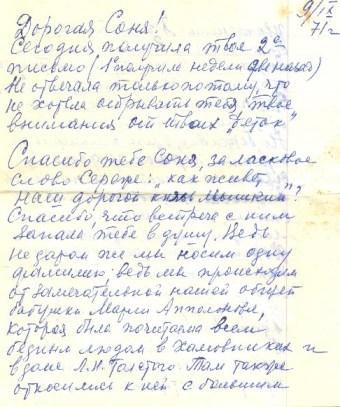 9/IX
71 г
Дорогая Соня!
Сегодня получила твое 2ое
письмо (1е получила недели две назад)
Не отвечала только потому, что
не хотела отрывать тебя твое
внимания от твоих "деток"
Спасибо тебе Соня, за ласковое
слово Сереже: "как живет
наш дорогой князь Мышкин"?
Спасибо, что встреча с ним
запала тебе в душу. Ведь
не даром же мы носим одну
фамилию, ведь мы происходим
от замечательной нашей общей
бабушки Марии Апполоновны,
которая была почитаема всем
бедным людом в Хамовниках и
в доме Л.Н. Толстого. Там также
относились к ней с большим